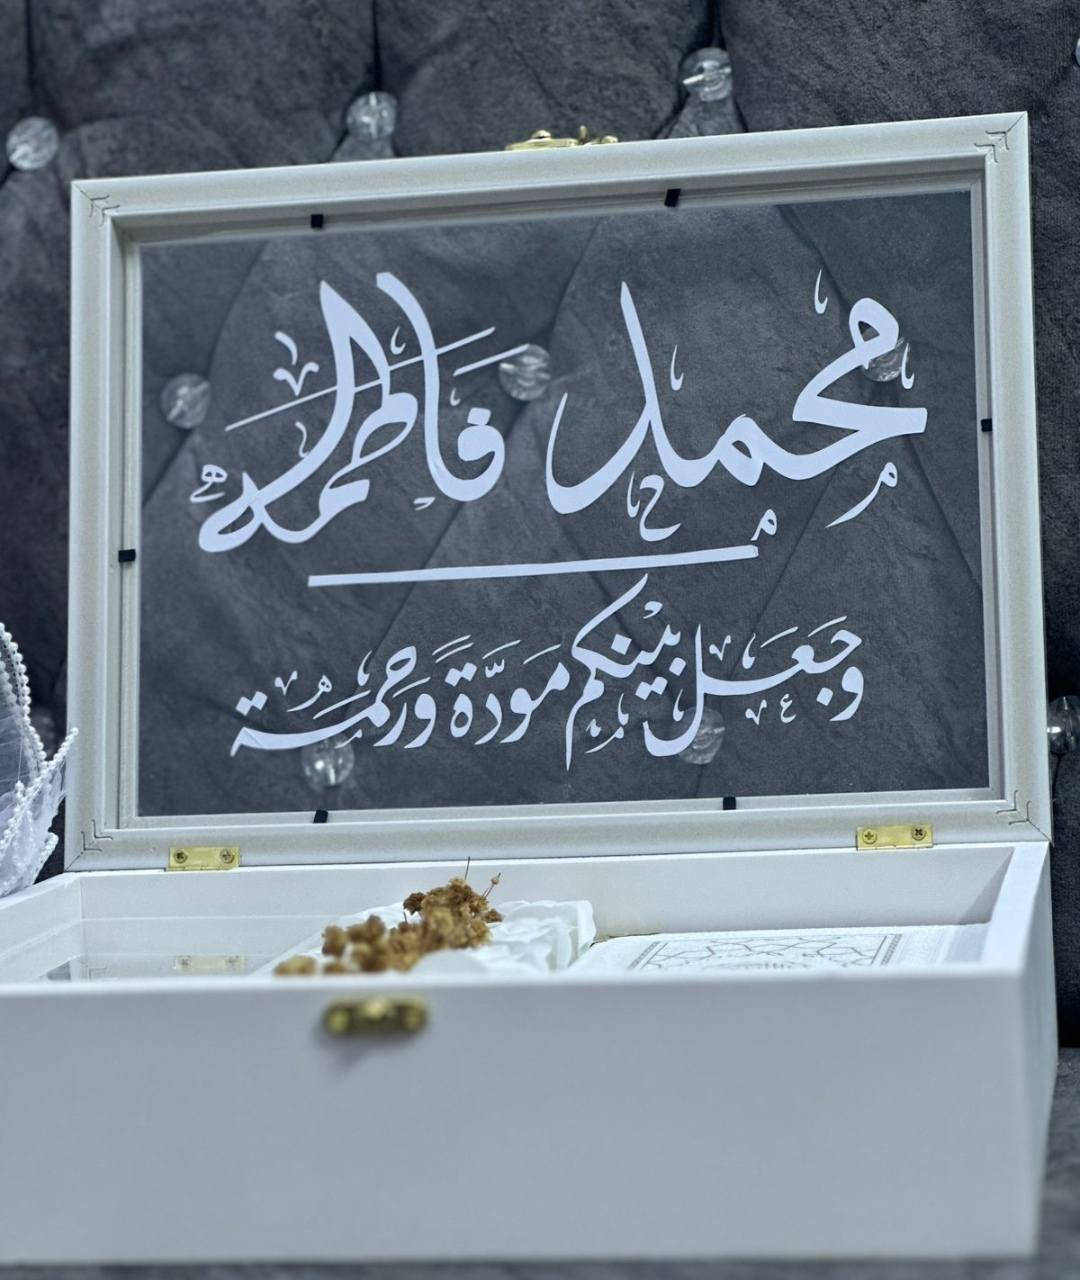 محمد فاطمة
وجعل بينكم مَوَدَّةً ورحمة